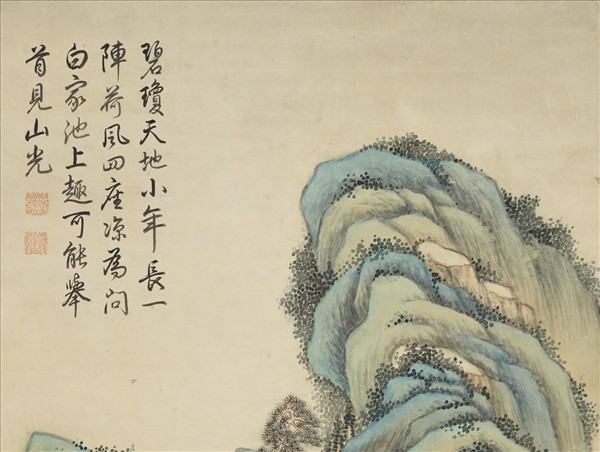 碧瓊天地小年長一
陣荷風四座涼為問
白家池上趣可能舉
首見山光